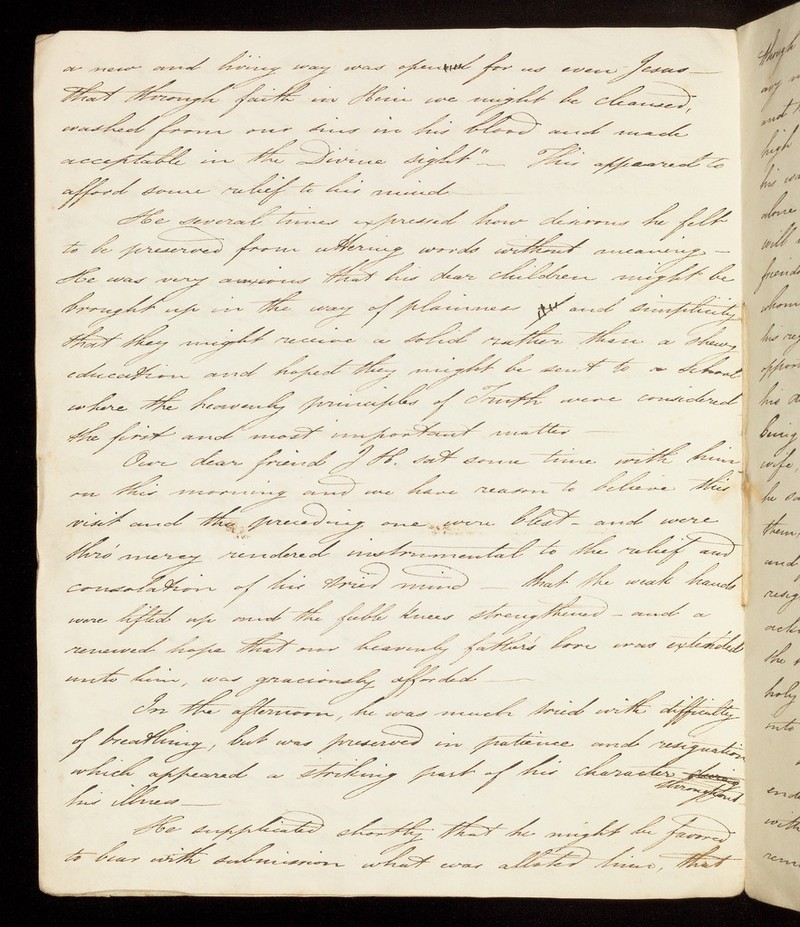 a new and living way was opened for us even Jesus —
that through faith in Him we might be cleansed,
washed from our sins in his blood and made
acceptable in the Divine sight" — This appeared to
afford some relief to his mind —
He several times expressed how desirous he felt
to be preserved from uttering words without meaning —
He was very anxious that his dear children might be
brought up in the way of plainness and simplicity
that they might receive a solid rather than a shewy
education and hoped they might be sent to a School
where the heavenly principles of Truth were considered
the first and most important matter —
Our dear friend J H. sat some time with him
on this morning and we have reason to believe this
visit and the preceding one were blest – and were
thro' mercy rendered instrumental to the relief and
consolation of his tried mind — that the weak hands
were lifted up and the feeble knees strengthened – and a
renewed hope that our heavenly father's love was extended
unto him, was graciously afforded —
In the afternoon, he was much tried with difficulty
of breathing, but was preserved in patience and resignation
which appeared a striking part of his character during
throughout
his illness —
He supplicated shortly that he might be favored
to bear with submission what was alloted him, that
though
any
and
high
his
alone
will
friends
whom
his
his
being
wife,
he
them,
and
the
holy
into
with